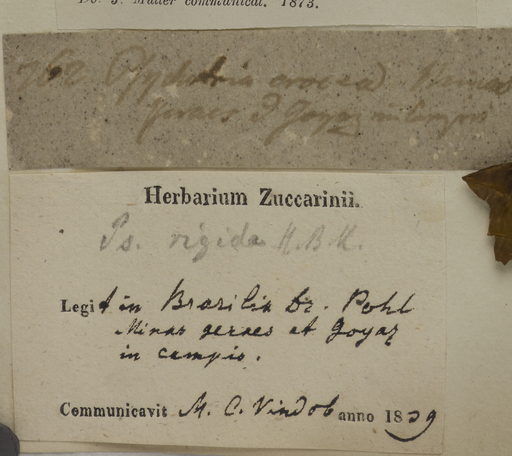 Do. J. Müller communicat. 1873.
762 Psychotria crocea Minas
geraes & Goyaz in campis
Herbarium Zuccarinii.
Ps. rigida H.B.K.
Legit in Brasilia Dr. Pohl
Minas geraes et Goyaz
in campis.
Communicavit M. C. Vindob anno 1839